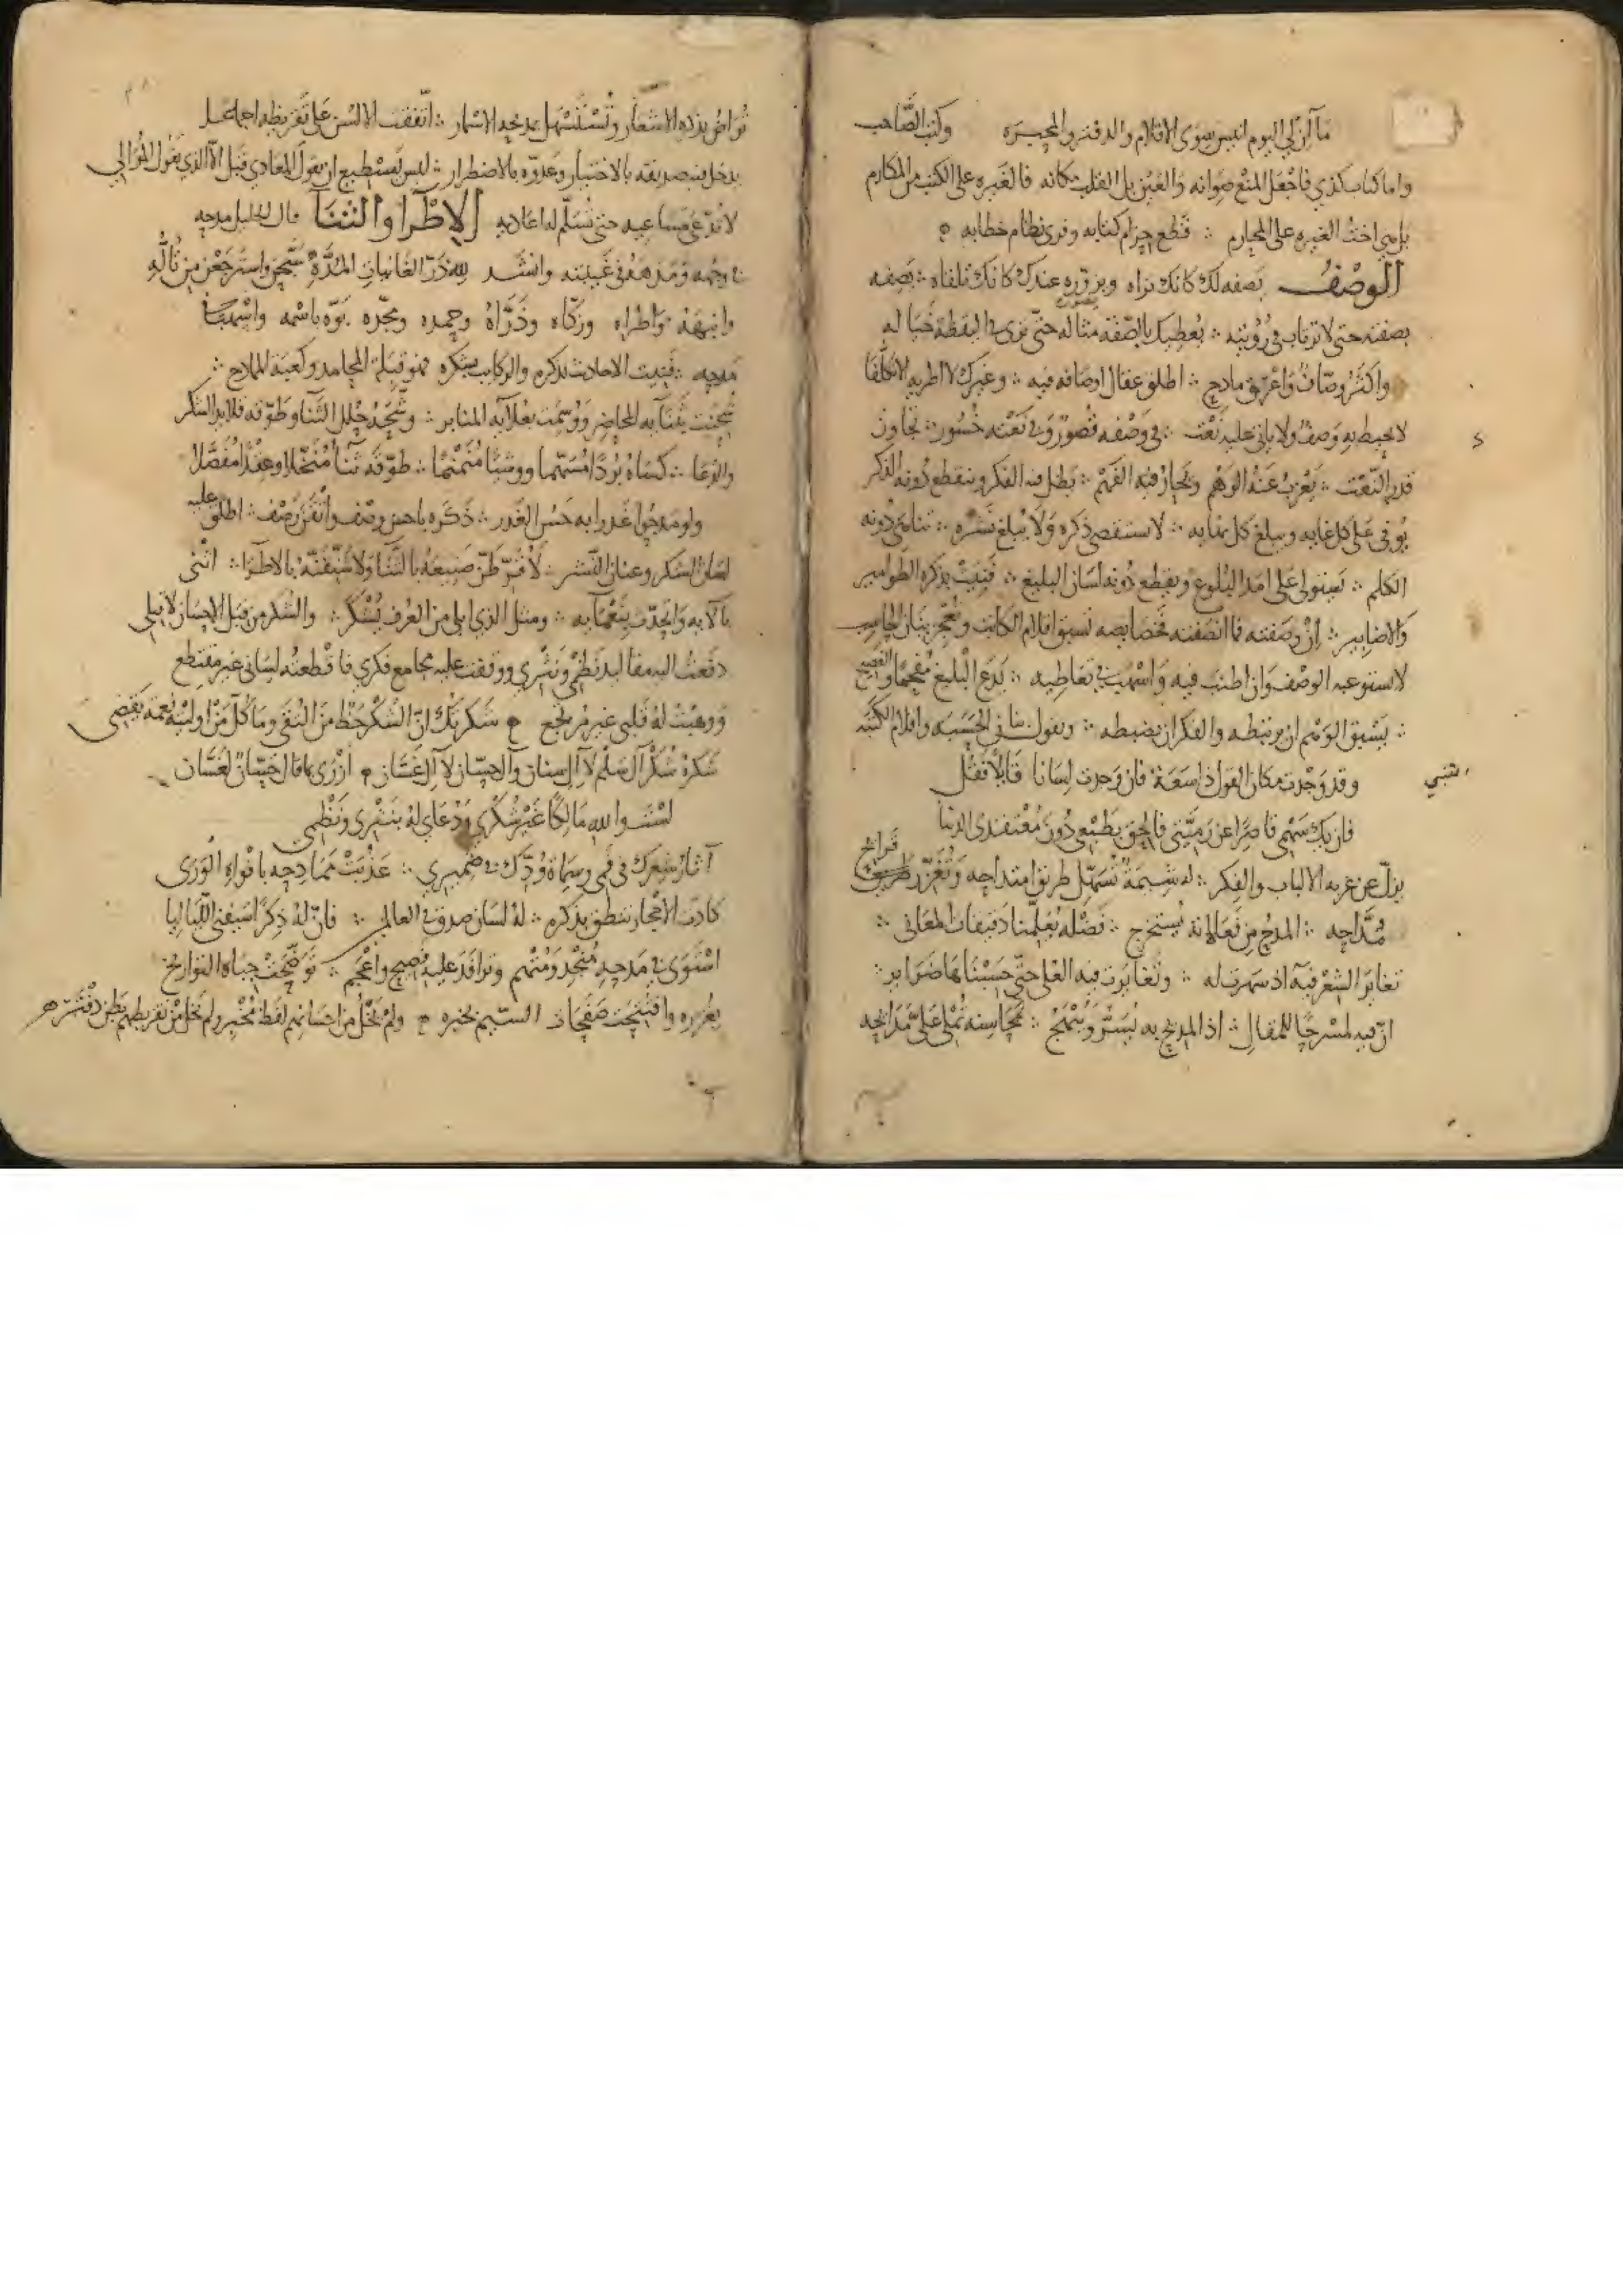 ما آن لي اليوم انيس سوى الاقلام والدفتر والمحبره وكتب الصَّاحب
واما كتاب كذي فاجعل المنع صوانه والعين بل القلب مكانه فالغيره على الكتب من المكارم
بل هي اخت الغيره على المحارم ∴ قطع حزام كتابه وفرى نظام خطابه
الوصْفُ يصفه لك كانك تراه ويزوره عندك كانك تلقاه ∴ يصفه
بصفته حتى لا ترتاب في رؤيته ∴ يعطيك بالصّفة مثاله حتى ترى في اليقظة خياله
واكثر وصّاف واعرق مادح ∴ اطلق عقال اوصافه فيه ∴ وغيرك لا اطريه الا تكلّفا
لا يحيط به وصفٌ ولا ياتي عليه نَعْت ∴ في وصْفه قصورٌ وفي نَعْته حُسُور ∴ تجاوز
قدر النّعت ∴ يَعْزب عَنْهُ الوَهْم ويَحار فيه الفَهْم ∴ يطل فيه الفكر وينقطع دونه الذكر
يُوفي على كل غايه ويبلغ كل نهايه ∴ لا يستقصى ذكره وَلا يُبلغ نَشْره ∴ تناهى دونه
الكلم ∴ يستولى على امد البُلوغ ويقطع دونه لسان البليغ ∴ فنيت بذكره الطوامير
والاضابير ∴ اِنْ وصفته فما انصفته فخصايصه تسبق اقلام الكاتب وتُعْجز بنان الحاسب
لا يستوعبه الوصْف وان اطنب فيه وَاسْهب في تعاطيه ∴ يَدع البليغ مُفحمًا والفصيح
∴ يَسْبق الوَهْم ان يرتبطه والفكر ان يضبطه ∴ ويفوت بنان الحَسَبه واقلام الكَتَبه
متنبي وقد وَجْدتَ مكان القول ذا سَعَة فان وجدت لسانا قابلاً فقُل
فان يك سَهْمى قاصرًا عن رَميَّتى فالحق يَطْبَعِ دُونَ مُعْتقدى الدنيا
يزلّ عن غربه الالباب والفِكر ∴ له شيمةٌ تُسَهّل طريق امتداحه وَتُغَزّر قرايح
مُدَّاحه ∴ المدح من فَعَالاته يُستخرج ∴ فَضْله يُعَلِّمنا دقيقات المعانى ∴
تغايَرَ الشعْرُ فيه اذ سهرت له ∴ وتَغايرت فيه العُلى حتى حَسِبْناها ضَراير ∴
انّ فيه لمَسْرحًا للمقال ∴ اذ المديح به يُسَرُّ ويُبْهَج ∴ مَحَاسِنه تُملى على مَدَّاحه
تراضُ بذكره الاشعار وتُسْتَسْهل بمدحه الاسْمار ∴ اتّفقت الالسُن على تَقريظه اجماعا
يدخل فيه صديقه بالاختيار وعدوّه بالاضطرار ∴ ليس يَسْتطيع ان يقولَ المعادي قبل الا الذي يقول الموالي
لا تدّعى مَساعيه حتى تُسَلّم له اعاديه الاِطْرا والثنَآ قال الخليل مدحه
في وجهه ومَدَهَهُ في غيبته وانشد لله دَرّ الغانيات المُدَّهِ سَبَّحْنَ واسترجَعْنَ من تَألّهِ
واطراه وزكّاه وذَرَّاهُ وحمده ومجّده نوّه باسْمه واسْهب في
مدحه ∴ فنيت الاحاديث بذكره والركايب بشكره فهو قبلة المحامد وكعبة المدّاح ∴
شُحِنت بثنايه المحاضر ووُسِمت بعُلايه المنابر ∴ وشّحه حُلل الثنا وطوّقه قلايد الشكر
والدعا ∴ كساه بُردًا مُسَهّما ووشيًا مُنَمْنمًا ∴ طوّقه ثناءً مُنَخّلا وعِقْدًا مُفَصَّلا
ولو مدحوا غدرا به حَسُن الغدر ∴ ذكره باحسن وصف واتْقن رَصْف ∴ اطلق عليه
لسَان الشكر وعنان النّشر ∴ لاُقَرّظنّ صَنيعَهُ بالثّنا ولاُشَنّفَنّه بالاطرا ∴ اثنى
بآلايه واتحدّث بنَعْمآيه ∴ ومثل الذي ابلى من العُرف يُشْكر ∴ والشكر من قبل الاحسان لا يبلى
دفعت اليه مقاليد نظْمى وَنثْري ووقفت عليه مجامع فكري فاقْطعتُه لِسانى غير مقتطع
وَوهبْتُ لهُ قلبى غير مرتجع شكرتُك انّ الشُكْرَ حَظٌّ من التُقى وما كُلّ مَنْ اوليْته نعمة يَقضى
شكرهُ شكْرُ آل سَلْم لآل سِنان وآلِ حسّان لآل غسّان ازْرى بما قال حَسّانُ لغسّان
لسْتَ والله مَالِكًا غَيرَ شُكْري ودُعاي لهُ بنثْرى ونَظْمى
آثار شعرك فى فمى وسِمَاة وُدّك في ضميري ∴ عذُبَتْ مَمَادِحه بافْواه الوَرَى
كادت الاَحْجار تنطق بذكره ∴ لهُ لسَان صدق في العالم ∴ فانّ لهُ ذِكرًا سَيُفنى اللّياليا
اسْتَوى في مَدحِهِ مُنْجدٌ ومُتْهم وترافدَ عليه فَصيح واعْجم ∴ تَوضّحَتْ جباه التواريخ
بغُرره وافتُتحت صَفحات السّيَر بخبره ولمْ يَخْلُ من احسَانهم لفظ مُخْبر ولم يَخْلُ منْ تقريظهم بَطن دفْتَر